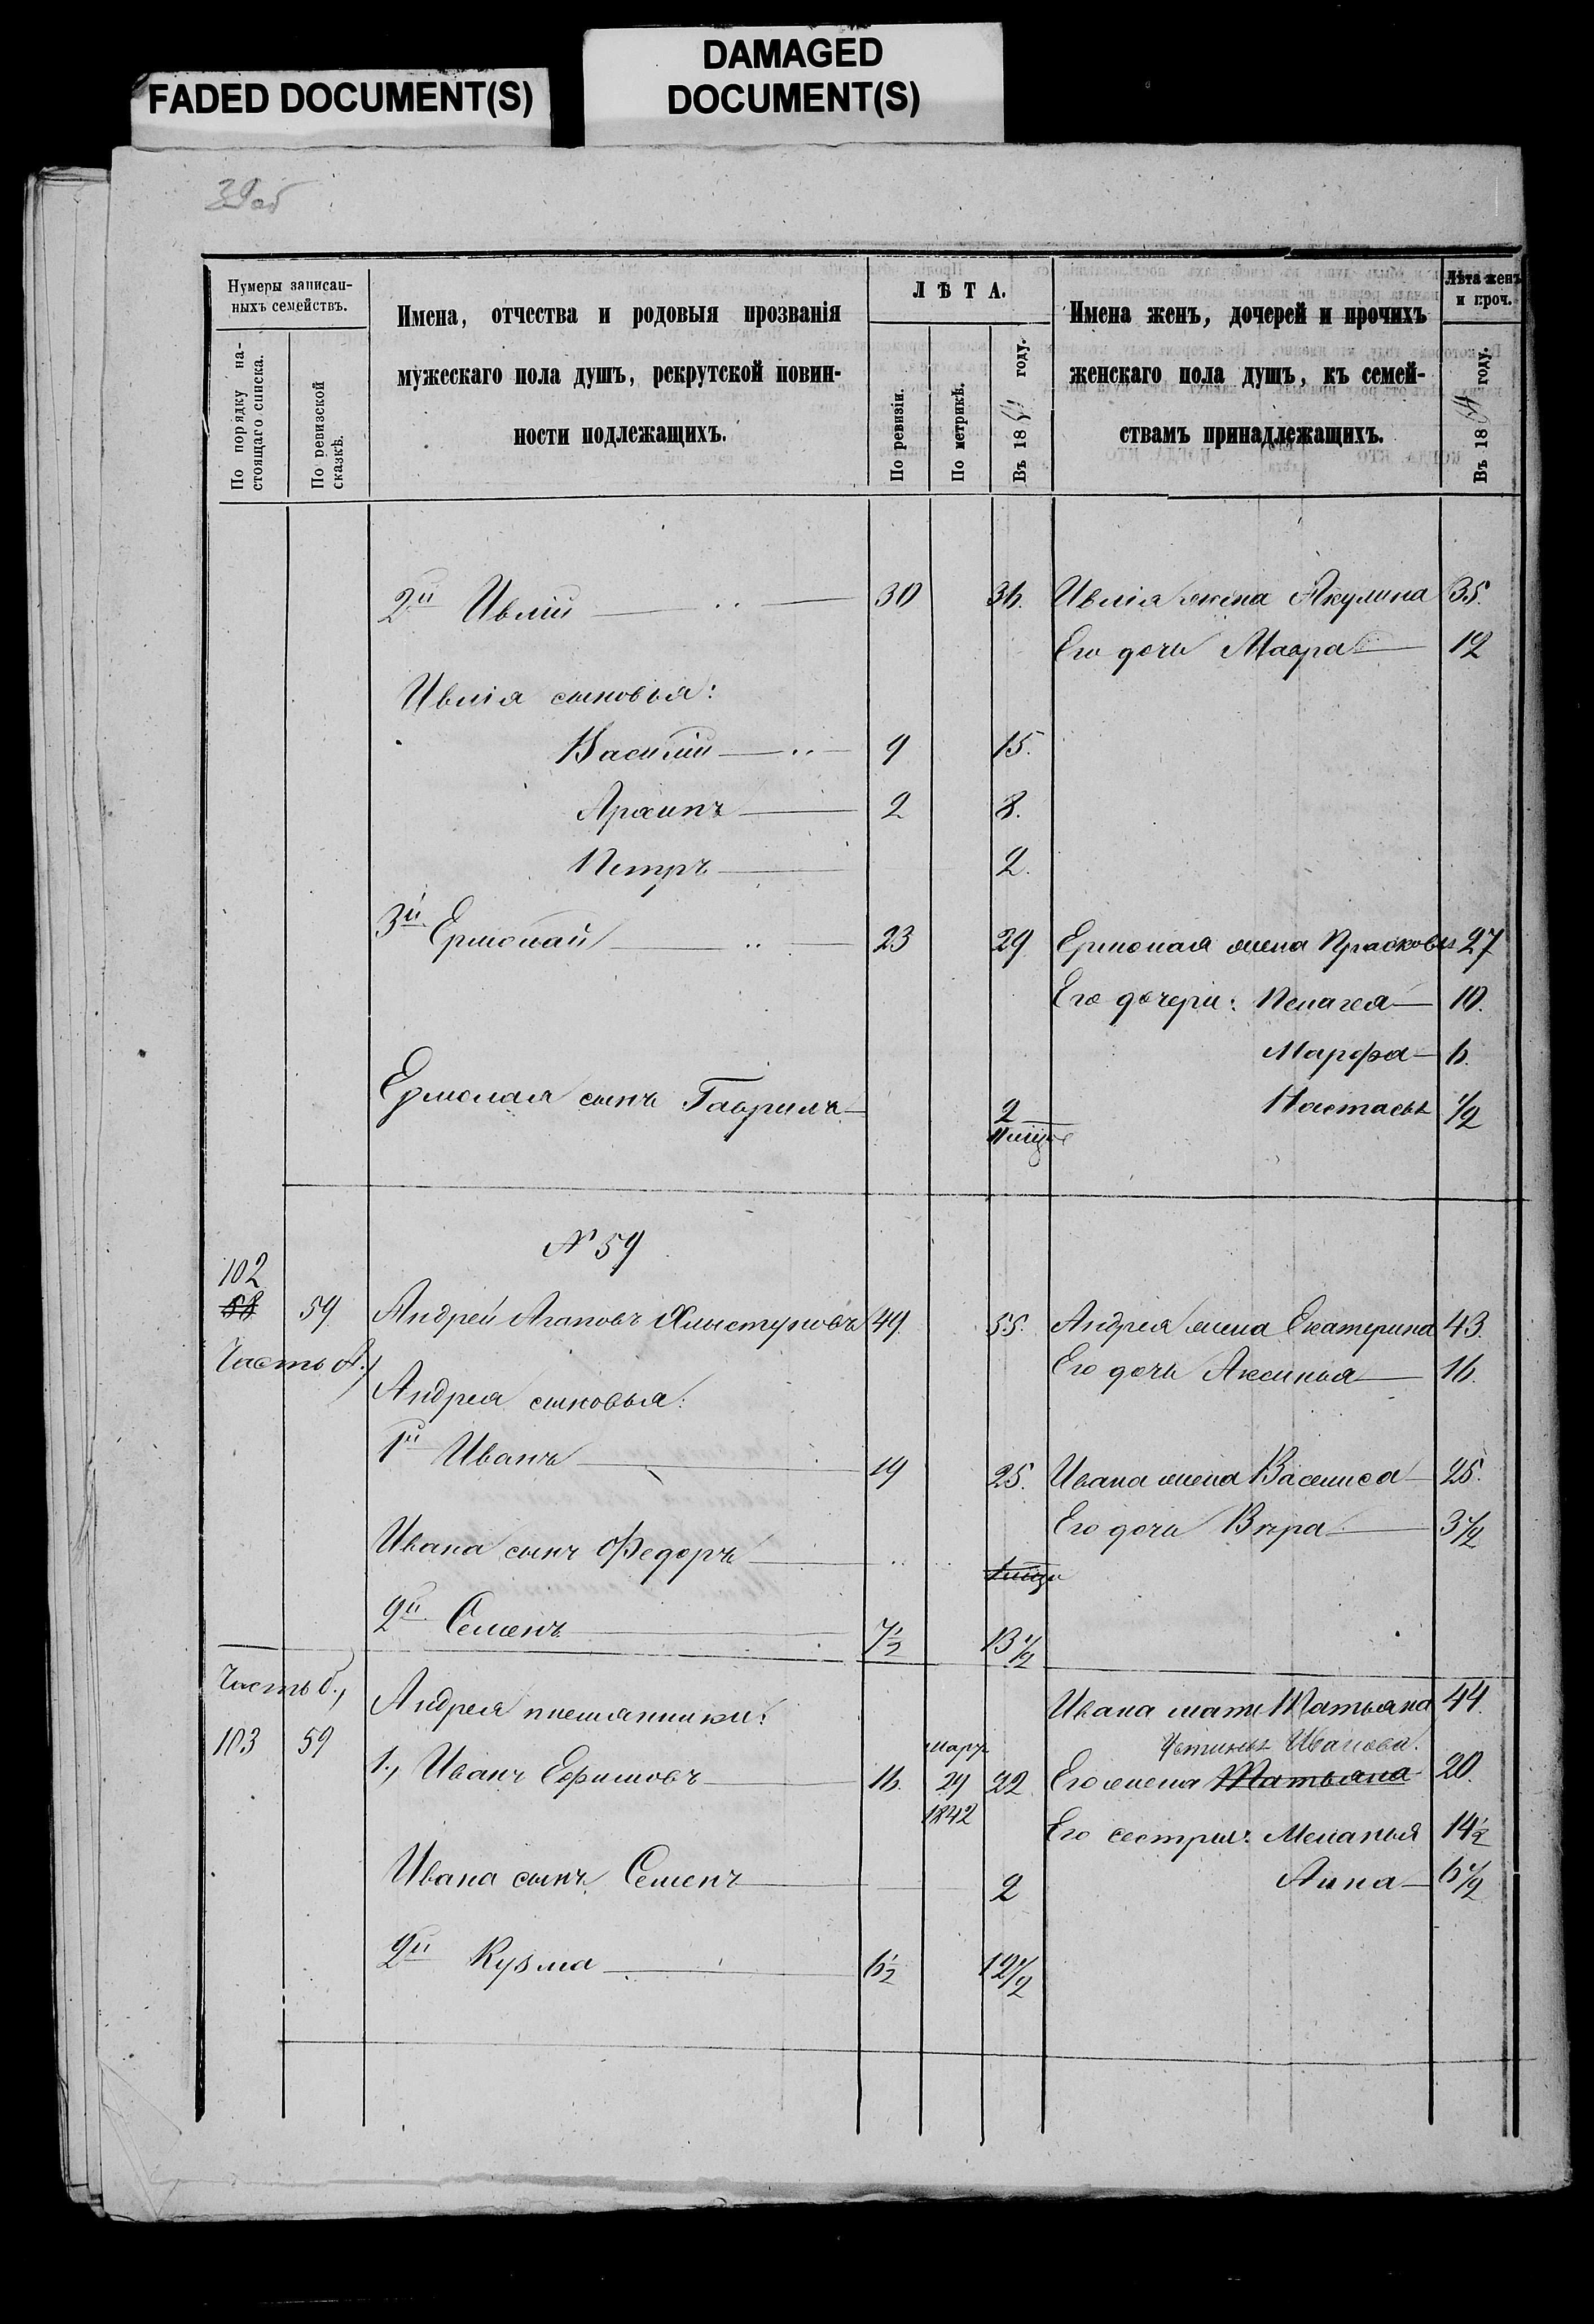 FADED DOCUMENT(S)
DAMAGED
DOCUMENT(S)
39об
Нумеры записан-
ныхъ семействъ.
По порядку на-
стоящаго списка.
По ревизской
сказкѣ.
Имена, отчества и родовыя прозванія
мужескаго пола душъ, рекрутской повин-
ности подлежащихъ.
ЛѢТА.
По ревизіи.
По метрикѣ.
Въ 1864 году.
Имена женъ, дочерей и прочихъ
женскаго пола душъ, къ семей-
ствамъ принадлежащихъ.
Лѣта женъ
и проч.
Въ 1864 году.
2й Ивлій 30 36. Ивлія жена Акулина 35.
Его дочь Мавра 12
Ивлія сыновья:
Василій 9 15.
Архипъ 2 8.
Петръ 2.
3й Ермолай 23 29 Ермолая жена Прасковья 27
Его дочери: Пелагея 10.
Марфа 6.
Ермолая сынъ Гаврилъ 2 Настасья 1/2
№ 59
102
58 59 Андрей Агаповъ Хлыстуновъ 49. 55. Андрея жена Екатерина 43.
Часть А., Его дочь Аксинья 16.
Андрея сыновья:
1й Иванъ 19 25. Ивана жена Василиса 25.
Его дочь Вѣра 3 1/2
Ивана сынъ Федоръ
2й Семенъ 7 1/2 13 1/2
Часть б., Андрея племянники: Ивана мать Татьяна 44.
103 59 Устинья Иванова.
1., Иванъ Ефимовъ 16. март 29 1842 22 Его жена Татьяна 20.
Его сестры: Меланья 14 1/2
Ивана сынъ Семенъ 2 Анна 6 1/2
2й Кузма 6 1/2 12 1/2